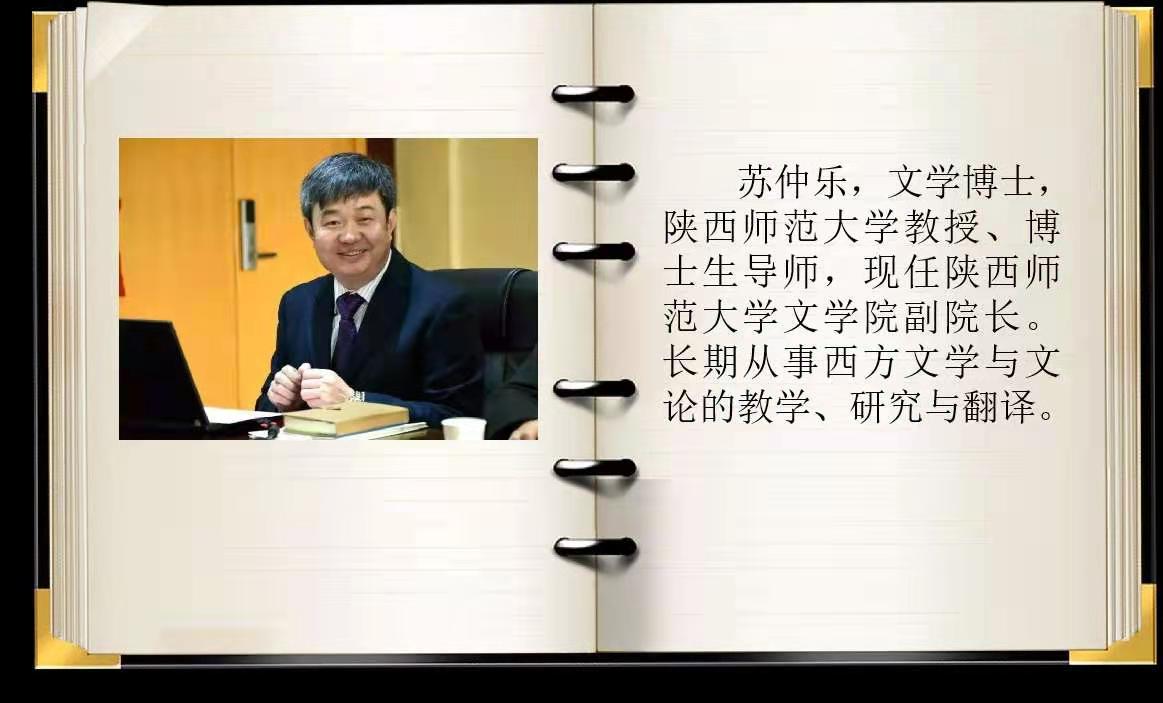 苏仲乐，文学博士，
陕西师范大学教授、博
士生导师，现任陕西师
范大学文学院副院长。
长期从事西方文学与文
论的教学、研究与翻译。